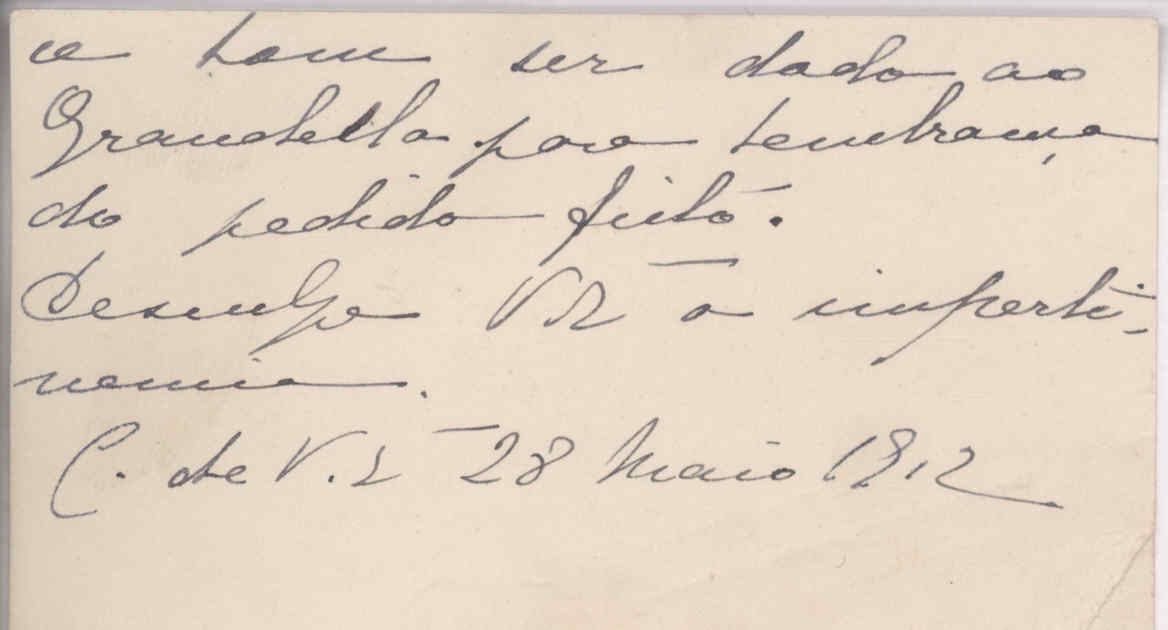 e bom ser dado ao
Grandella para lembrança
do pedido feito.
Desculpe V. Ex a imperti-
nencia.
C. de V. Ex 28 Maio 1912